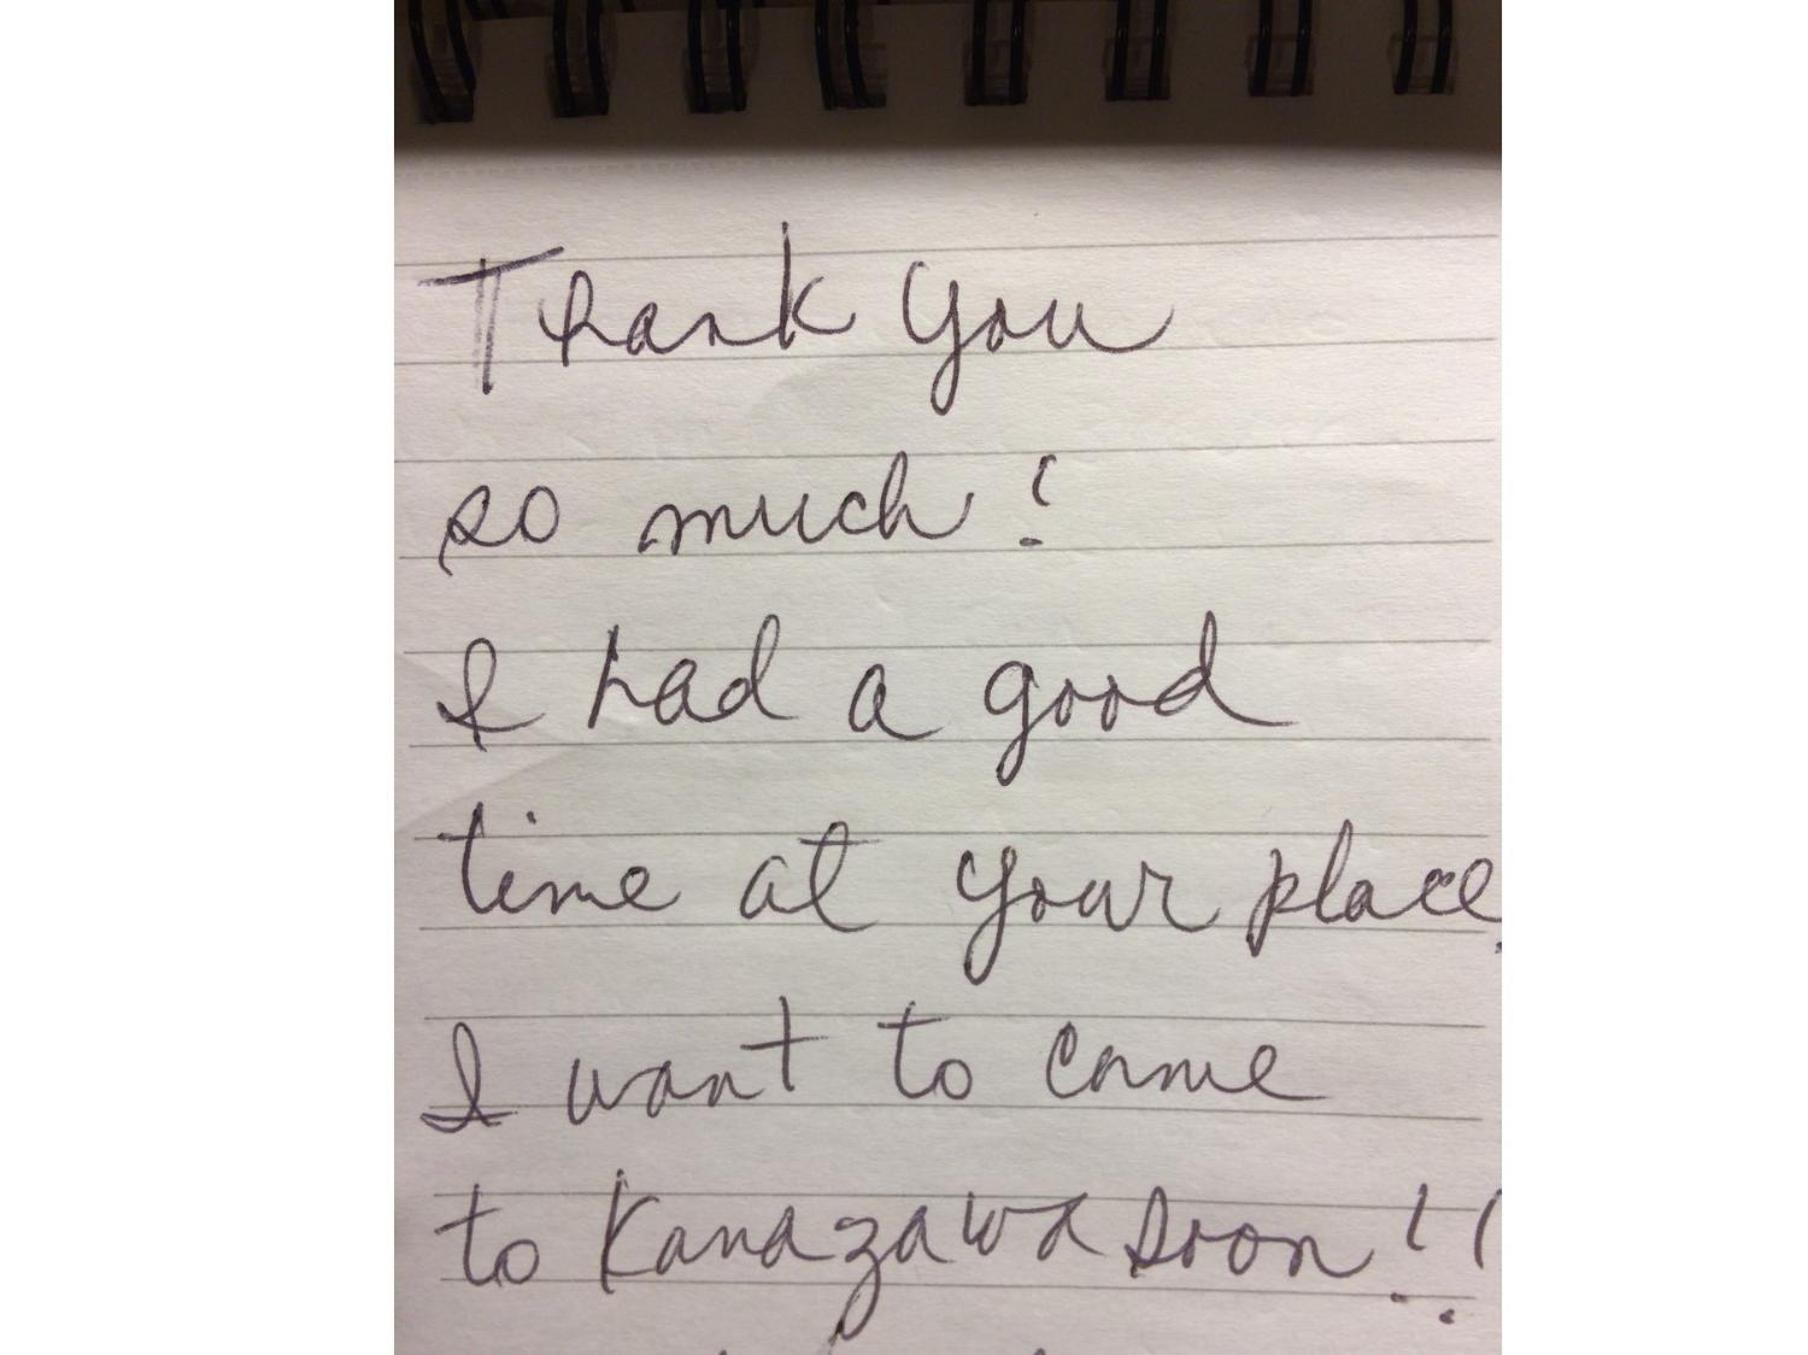 Thank you
so much!
I had a good
time at your place.
I want to come
to Kanazawa soon!!